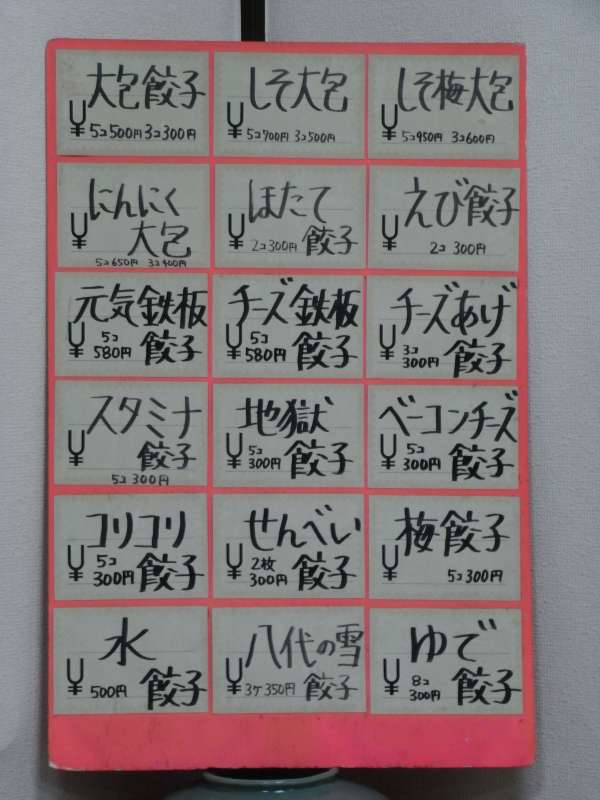 大包餃子
¥ 5コ500円 3コ300円
しそ大包
¥ 5コ700円 3コ500円
しそ梅大包
¥ 5コ950円 3コ600円
にんにく
大包
¥ 5コ650円 3コ400円
ほたて
餃子
¥ 2コ300円
えび餃子
¥ 2コ 300円
元気鉄板
餃子
¥ 5コ 580円
チーズ鉄板
餃子
¥ 5コ 580円
チーズあげ
餃子
¥ 3コ 300円
スタミナ
餃子
¥ 5コ 300円
地獄
餃子
¥ 5コ 300円
ベーコンチーズ
餃子
¥ 5コ 300円
コリコリ
餃子
¥ 5コ 300円
せんべい
餃子
¥ 2枚 300円
梅餃子
¥ 5コ300円
水
餃子
¥ 500円
八代の雪
餃子
¥ 3ケ350円
ゆで
餃子
¥ 8コ 300円